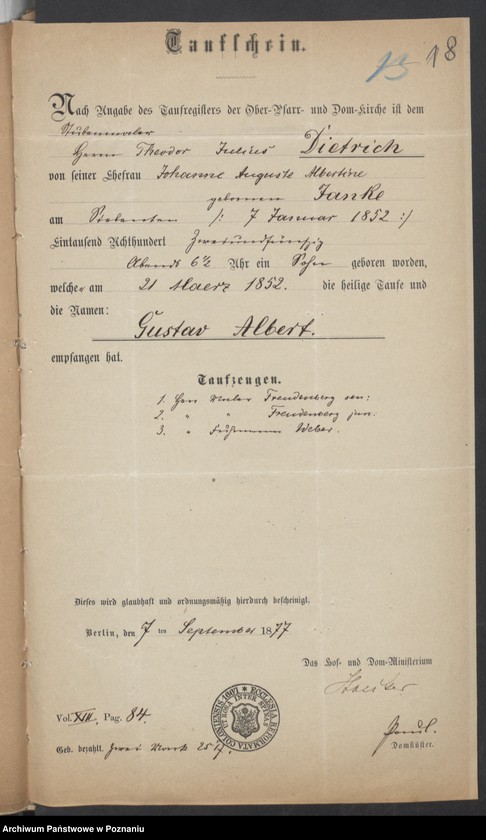 Taufschein.
18
15
Nach Angabe des Taufregisters der Ober-Pfarr- und Dom-Kirche ist dem
Stubenmaler
Herrn Theodor Julius Dietrich
von seiner Ehefrau Johanne Auguste Albertine
geborenen Janke
am Siebenten /: 7 Januar 1852 :/
Eintausend Achthundert Zweiundfünfzig
Abends 6½ Uhr ein Sohn geboren worden,
welcher am 21 Maerz 1852. die heilige Taufe und
die Namen:
Gustav Albert.
empfangen hat.
Taufzeugen.
1. Herr Maler Freudenberg sen:
2. " " Freudenberg jun:
3. " Fuhrmann Weber.
Dieses wird glaubhaft und ordnungsmäßig hierdurch bescheinigt.
Berlin, den 7ten September 1877
Das Hof- und Dom-Ministerium
ECCLESIA REFORMATA COLONIENSIS
UT ROSA INTER SPINAS
Vol. XIII. Pag. 84.
Domküster.
Geb. bezahlt. Zwei Mark 25
Archiwum Państwowe w Poznaniu